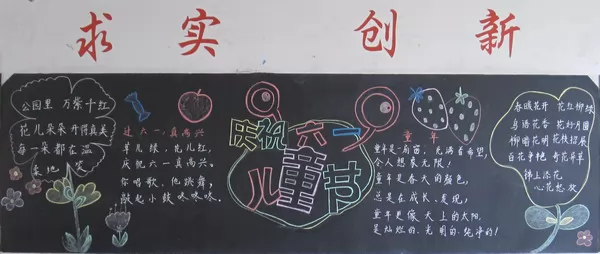 求实 创新
公园里 万紫千红
花儿朵朵 开得真美
每一朵都在温
柔地 笑
过六一真高兴
草儿绿,花儿红,
庆祝六一真高兴。
你唱歌,他跳舞,
敲起小鼓咚咚咚。
庆祝六一
儿童节
童年
童年是一扇窗,充满着希望,
个人想象无限!
童年是春天的颜色,
总是在成长、发现;
童年更像天上的太阳,
是灿烂的、光明的、纯净的!
春暖花开 花红柳绿
鸟语花香 花好月圆
柳暗花明 花枝招展
百花争艳 奇花异草
锦上添花
心花怒放